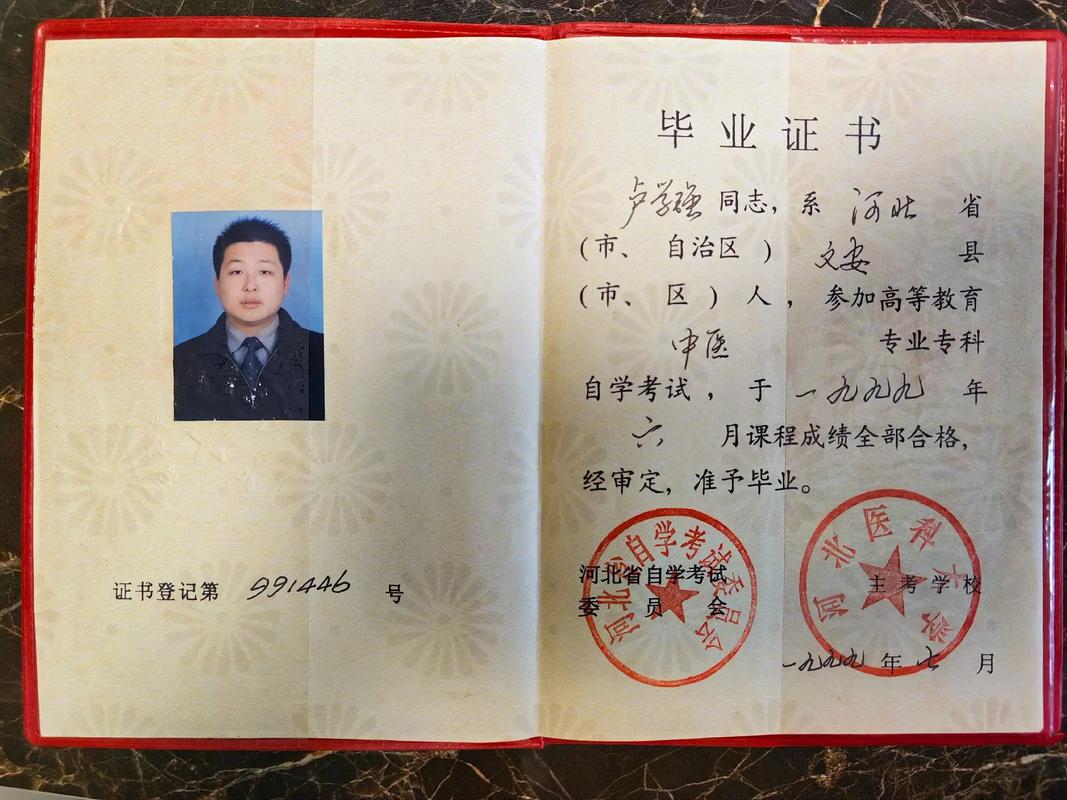 证书登记第 991446 号
毕业证书
卢学强 同志，系 河北 省
（市、 自治区 ） 文安 县
（市、 区 ） 人，参加高等教育
中医 专业专科
自学考试，于 一九九九 年
六 月课程成绩全部合格，
经审定，准予毕业。
河北省自学考试委员会
河北省自学考试
委员会
河北医科大学
主考学校
一九九九 年 七 月